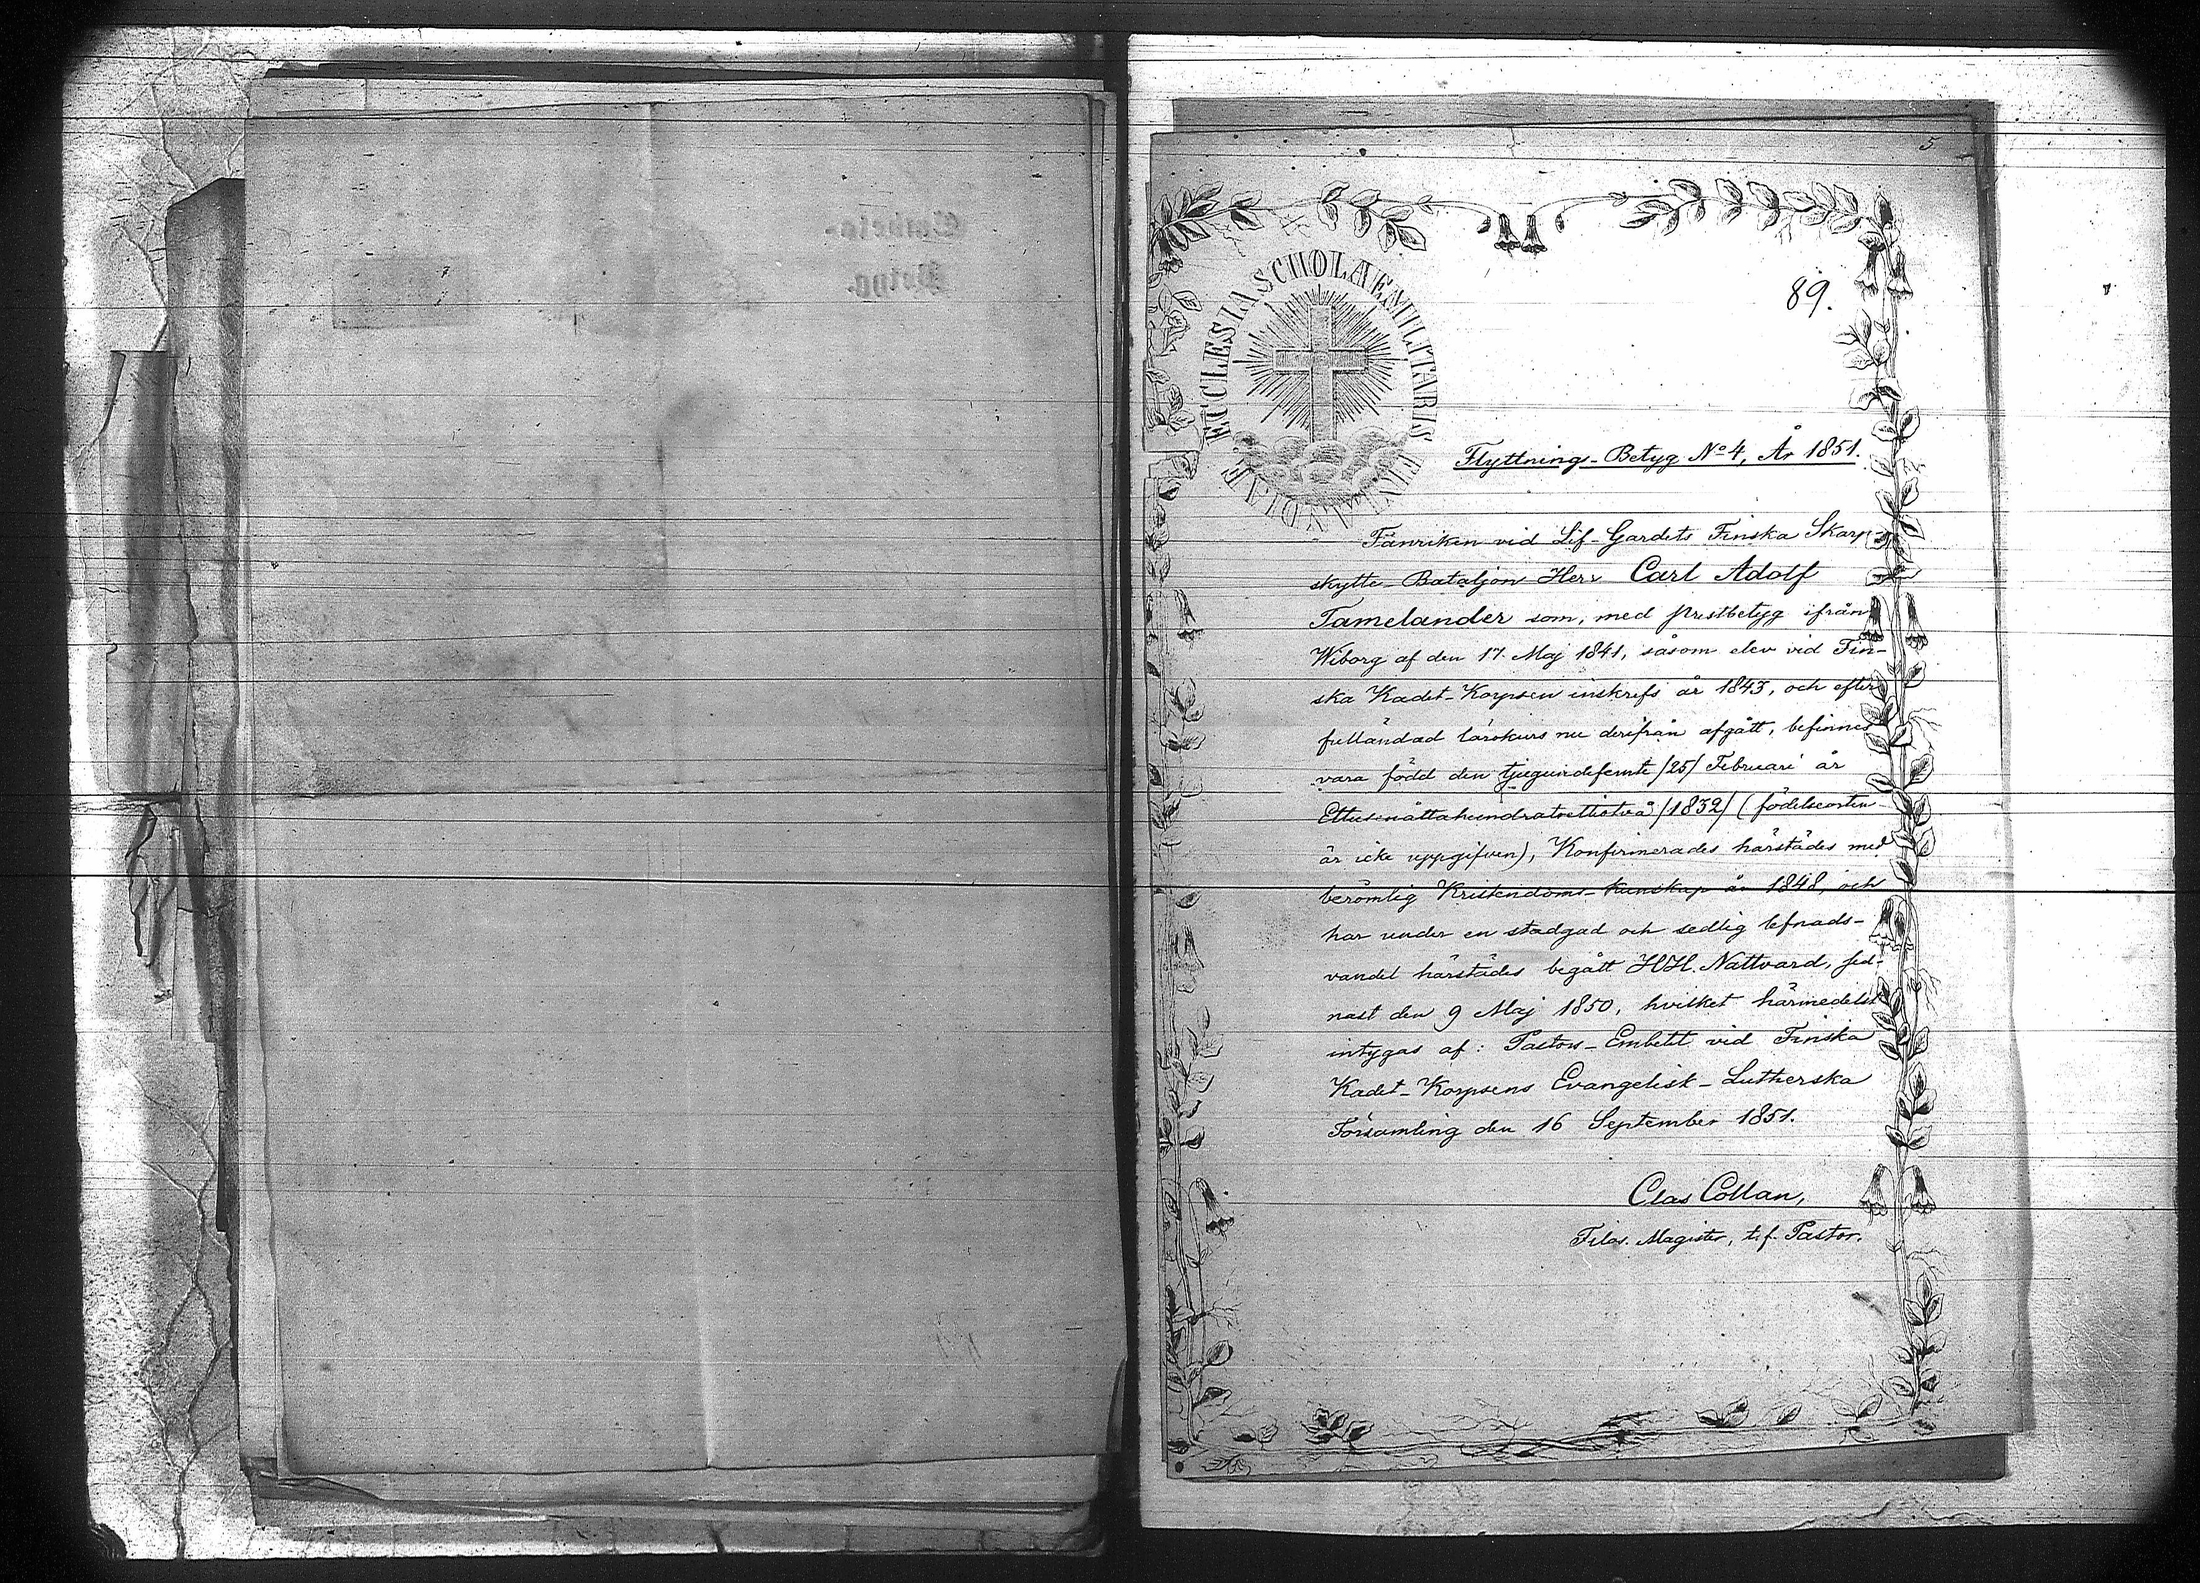 5
89.
ECCLESIA SCHOLAE MILITARIS FINLANDIAE
Flyttnings-Betyg No 4, År 1851.
Fänriken vid Lif-Gardets Finska Skarp-
skytte-Bataljon Herr Carl Adolf
Tamelander som, med prestbetyg ifrån
Wiborg af den 17 Maj 1841, såsom elev vid Fin-
ska Kadet-Korpsen inskrefs år 1843, och efter
fulländad lärokurs nu derifrån afgått, befinnes
vara född den tjugundefemte /25/ Februari år
Ettusenåttahundratrettiotvå /1832/ (födelseorten
är icke uppgifven), Konfirmerades härstädes med
berömlig Kristendoms-kunskap år 1848, och
har under en stadgad och sedlig lefnads-
vandel härstädes begått H.H. Nattvard, sed-
nast den 9 Maj 1850, hvilket härmedelst
intygas af: Pastors-Embetet vid Finska
Kadet-Korpsens Evangelisk-Lutherska
Församling den 16 September 1851.
Clas Collan,
Filos. Magister, t.f. Pastor.